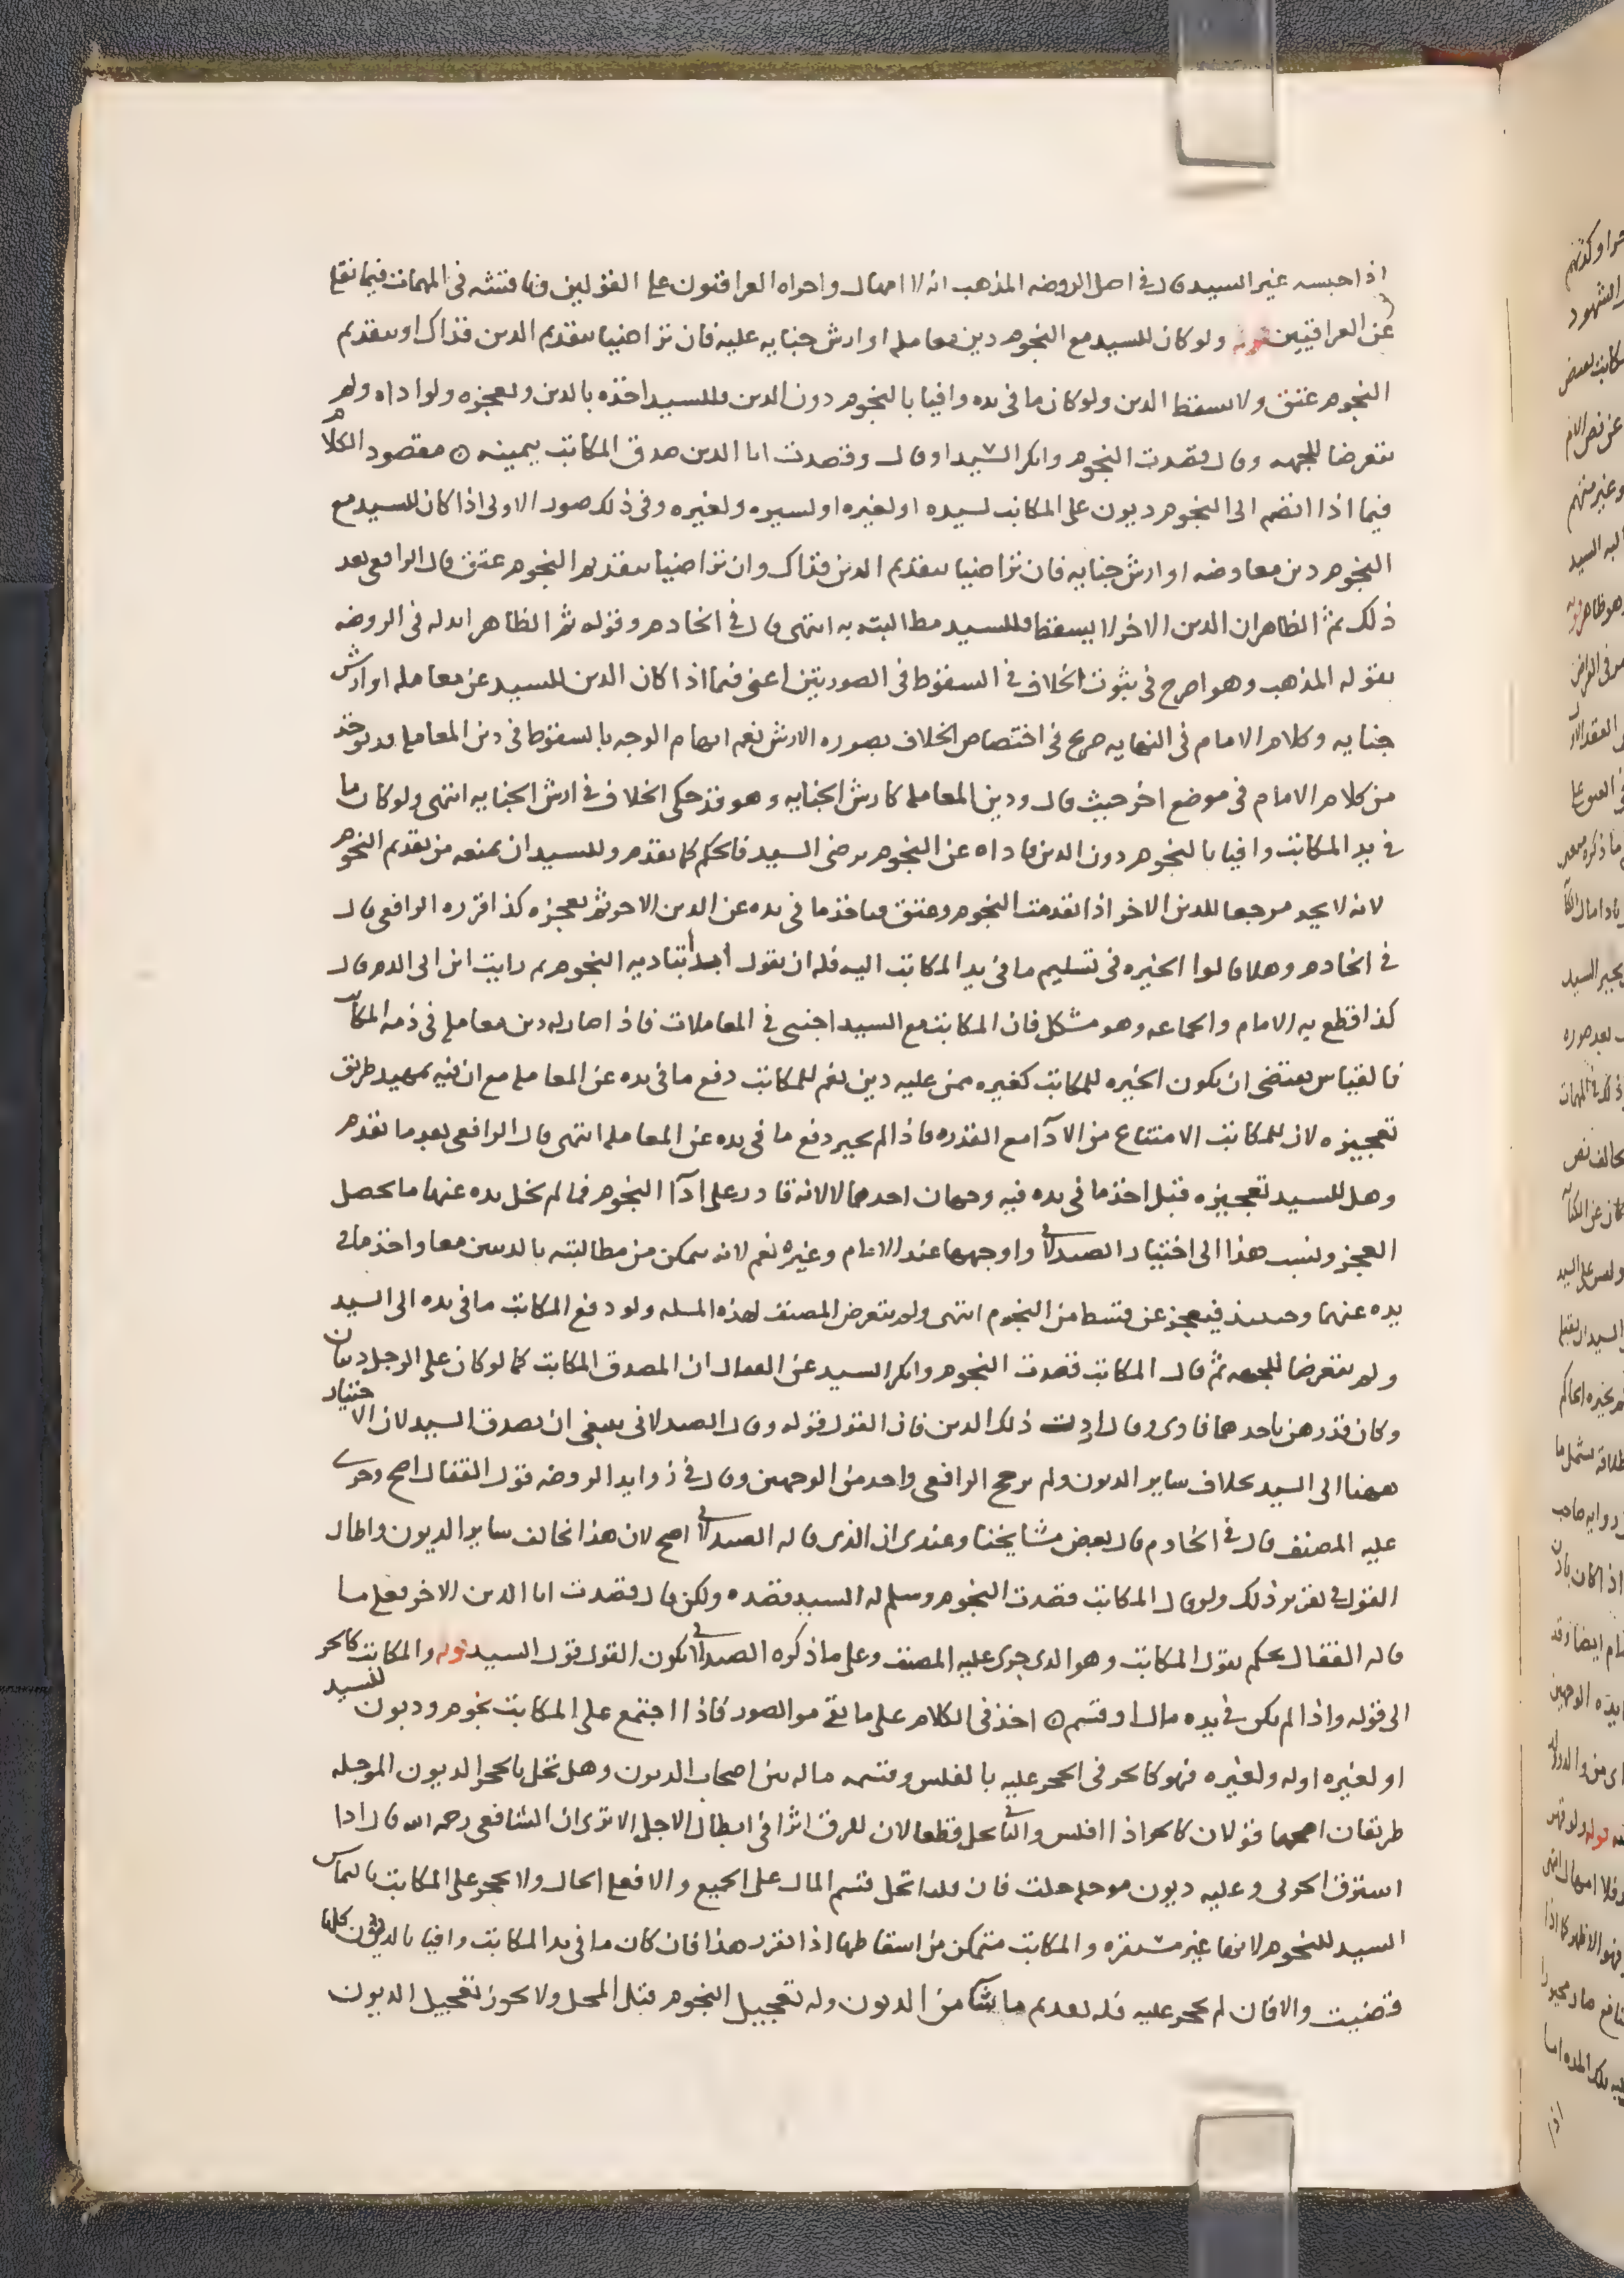 اذا حبسه غير السيد قال في اصل الروضه المذهب انه لا امهال واجراه العراقيون على القولين وناقشه في المهمات فيما نقله
عن العراقيين قوله ولو كان للسيد مع النجوم دين معامله او ارش جنايه عليه فان تراضيا بتقديم الدين فذاك او بتقديم
النجوم عتق ولا يسقط الدين ولو كان ما في يده وافيا بالنجوم دون الدين فللسيد اخذه بالدين وتعجيزه ولو اداه ولم
يتعرضا للجهه وقال قصدت النجوم وانكر السيد او قال وقصدت انا الدين صدق المكاتب بيمينه ٥ مقصود الكلام
فيما اذا انضم الى النجوم ديون على المكاتب لسيده او لغيره او لسيده ولغيره وفي ذلك صور الاولى اذا كان للسيد مع
النجوم دين معاوضه او ارش جنايه فان تراضيا بتقديم الدين فذاك وان تراضيا بتقديم النجوم عتق قال الرافعي بعد
ذلك ثم الظاهر ان الدين الاخر لا يسقط فللسيد مطالبته به انتهى قال في الخادم وقوله ثم الظاهر ابدله في الروضه
بقوله المذهب وهو اصرح في ثبوت الخلاف في السقوط في الصورتين اعني فيما اذا كان الدين للسيد عن معامله او ارش
جنايه وكلام الامام في النهايه صريح في اختصاص الخلاف بصوره الارش نعم ابهام الوجه بالسقوط في دين المعامله قد يوخذ
من كلام الامام في موضع اخر حيث قال ودين المعامله كارش الجنايه وهو قد حكى الخلاف في ارش الجنايه انتهى ولو كان ما
في يد المكاتب وافيا بالنجوم دون الدين فاداه عن النجوم برضى السيد فالحكم كما تقدم وللسيد ان يمنعه من تقديم النجوم
لانه لا يجد مرجعا للدين الاخر اذا تقدمت النجوم وعتق فياخذ ما في يده عن الدين الاخر ثم يعجزه كذا اقرره الرافعي قال
في الخادم وهلا قالوا الخيره في تسليم ما في يد المكاتب اليه فله ان يقول ابدا بتاديه النجوم ثم رايت ابن ابي الدم قال
كذا قطع به الامام والجماعه وهو مشكل فان المكاتب مع السيد اجنبي في المعاملات فاذا صار له دين معامله في ذمه المكاتب
فالقياس يقتضي ان يكون الخيره للمكاتب كغيره ممن عليه دين نعم للمكاتب دفع ما في يده عن المعامله مع ان فيه تمهيد طريق
تعجيزه لان للمكاتب الامتناع من الادآ مع القدره فاذا لم يجبر دفع ما في يده عن المعامله انتهى قال الرافعي بعد ما تقدم
وهل للسيد تعجيزه قبل اخذ ما في يده فيه وجهان احدهما لا لانه قادر على ادآ النجوم فما لم تخل يده عنها ما يحصل
العجز ونسب هذا الى اختيار الصيدلاني واوجههما عند الامام وغيره نعم لانه يتمكن من مطالبته بالدينين معا واخذ ما في
يده عنهما وحينئذ فيعجز عن قسط من النجوم انتهى ولم يتعرض المصنف لهذه المسله ولو دفع المكاتب ما في يده الى السيد
ولم يتعرضا للجهه ثم قال المكاتب قصدت النجوم وانكر السيد عن القفال ان المصدق المكاتب كما لو كان على الرجل دينان
وكان قد رهن باحدهما فادى وقال اديت ذلك الدين فان القول قوله وقال الصيدلاني ينبغي ان يصدق السيد لان الاختيار
ههنا الى السيد بخلاف ساير الديون ولم يرجح الرافعي واحد من الوجهين وقال في زوايد الروضه قول القفال اصح وجرى
عليه المصنف قال في الخادم قال بعض مشايخنا وعندي ان الذي قاله الصيدلاني اصح لان هذا يخالف ساير الديون واطال
القول في تقرير ذلك ولو قال المكاتب قصدت النجوم وسلم له السيد قصده ولكن قال قصدت انا الدين الاخر فعلى ما
قاله القفال يحكم بقول المكاتب وهو الذي جرى عليه المصنف وعلى ما ذكره الصيدلاني يكون القول قول السيد قوله والمكاتب كالحر
الى قوله واذا لم يكن في يده مال او قسم ٥ اخذ في الكلام على ما بقي من الصور فاذا اجتمع على المكاتب نجوم وديون للسيد
او لغيره او له ولغيره فهو كالحر في الحجر عليه بالفلس وقسمه ماله بين اصحاب الديون وهل تحل بالحجر الديون الموجله
طريقان اصحهما قولان كالحر اذا افلس والثاني يحل قطعا لان للرق اثرا في ابطال الاجل الا ترى ان الشافعي رحمه الله قال اذا
استرق الحربي وعليه ديون موجله حلت فان قلنا تحل قسم المال على الجميع والا فعلى الحال ولا يحجر على المكاتب بالتماس
السيد للنجوم لانها غير مستقره والمكاتب متمكن من اسقاطها اذا تقرر هذا فان كان ما في يد المكاتب وافيا بالديون كلها
قضيت والا فان لم يحجر عليه فله تقديم ما شآ من الديون وله تعجيل النجوم قبل المحل ولا يجوز تعجيل الديون